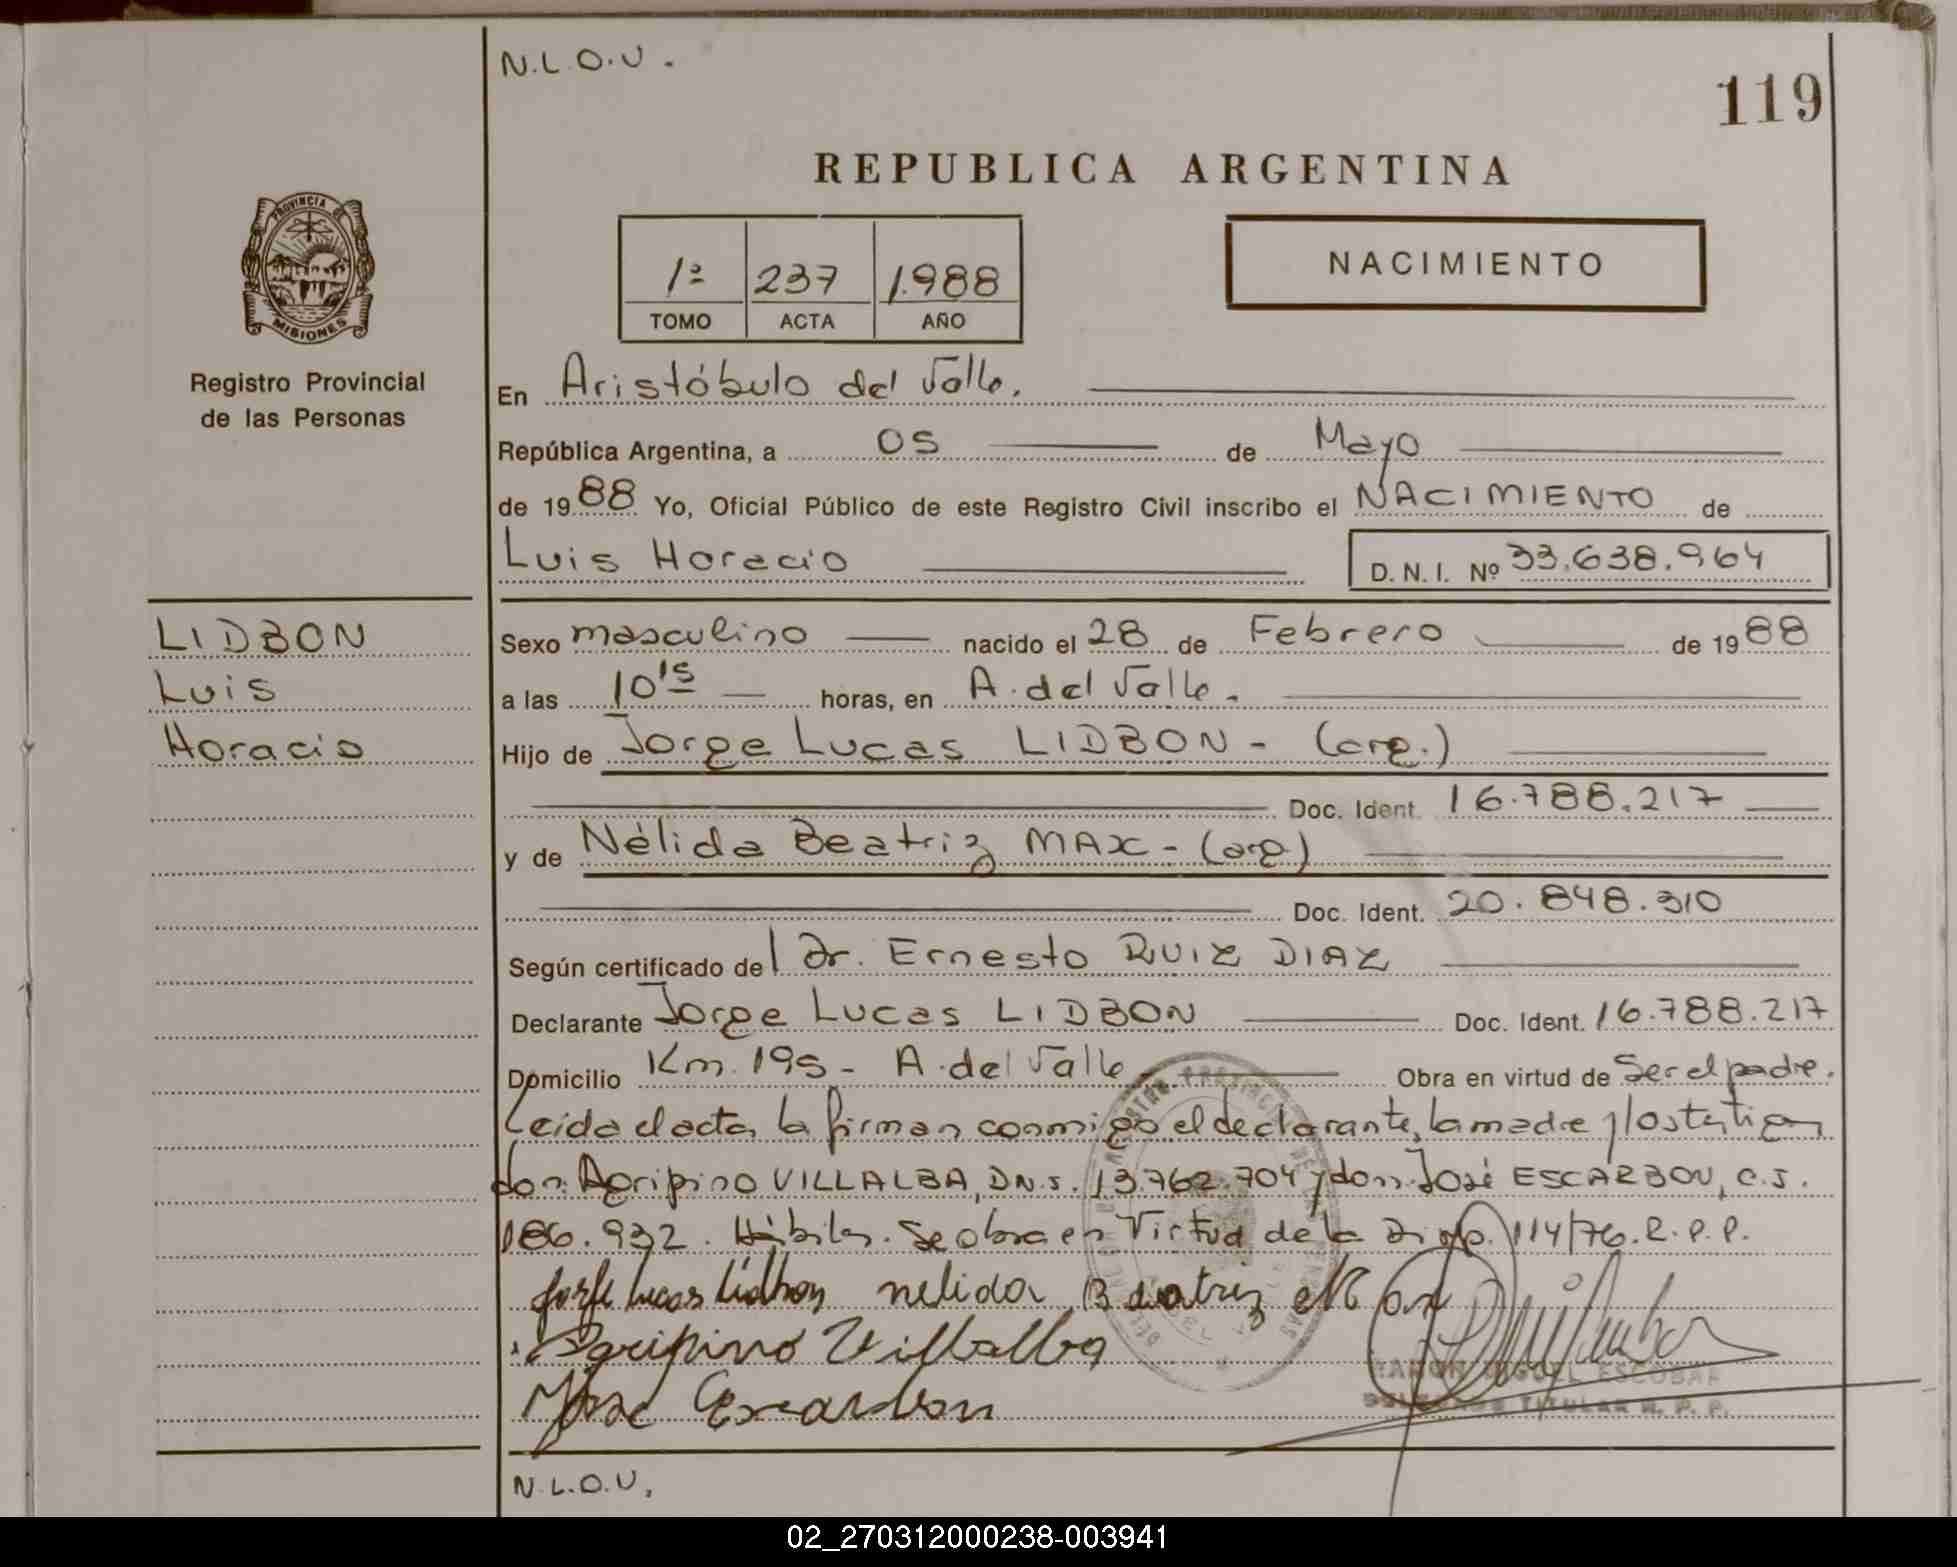 N.L.O.U.
119
REPUBLICA ARGENTINA
PROVINCIA DE
MISIONES
Registro Provincial
de las Personas
1ª 237 1.988
TOMO ACTA AÑO
NACIMIENTO
En Aristóbulo del Valle.
República Argentina, a 05 de Mayo
de 1988 Yo, Oficial Público de este Registro Civil inscribo el NACIMIENTO de
Luis Horacio D.N.I. Nº 33.638.964
LIDBON
Luis
Horacio
Sexo masculino nacido el 28 de Febrero de 1988
a las 10'15 horas, en A. del Valle.
Hijo de Jorge Lucas LIDBON - (arg.)
Doc. Ident. 16.788.217
y de Nélida Beatriz MAX - (arg.)
Doc. Ident. 20.848.310
Según certificado del Dr. Ernesto RUIZ DIAZ
Declarante Jorge Lucas LIDBON Doc. Ident. 16.788.217
Domicilio Km. 195 - A. del Valle Obra en virtud de Ser el padre.
Leida el acta, la firman conmigo el declarante, la madre y los testigos
don: Agripino VILLALBA, D.N.I. 13.762.704 y don: José ESCARBON, C.I.
186.932. Hábiles. Se obra en Virtud de la Disp. 114/76. R.P.P.
Jorge Lucas Lidbon nelida Beatriz Max
Agripino Villalba
Jose Escarbon
RAMON MIGUEL ESCOBAR
TITULAR R. P. P.
N.L.O.U.
02_270312000238-003941